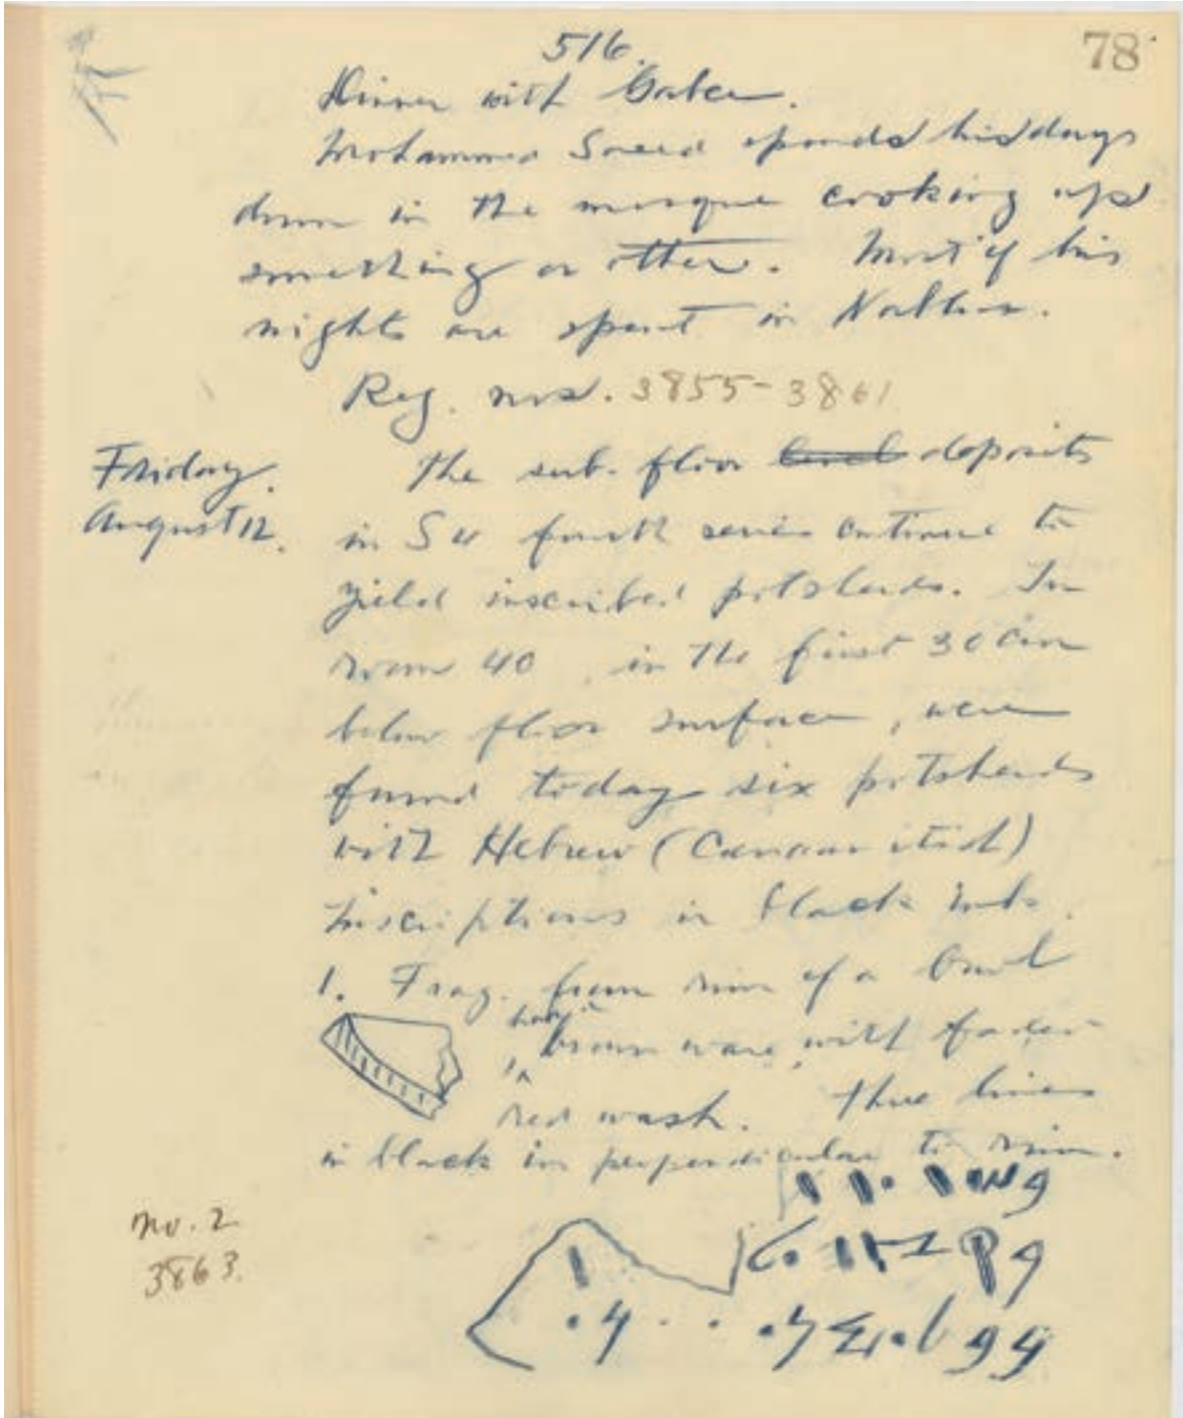 516.
78
Dinner with
Mohammed Saeed spends his days
down in the mosque cooking up
something or other. Most of his
nights are spent in Nablus.
Reg. nos. 3855-3861
Friday.
August 12.
The sub-floor level deposits
in S4 fourth series continue to
yield inscribed potsherds. In
room 40, in the first 30 cm
below floor surface, were
found today six potsherds
with Hebrew (Canaanitish)
inscriptions in black ink.
1. Frag. from rim of a bowl
brown ware, with faded
red wash. Three lines
in black ink perpendicular to rim.
no. 2
3863.